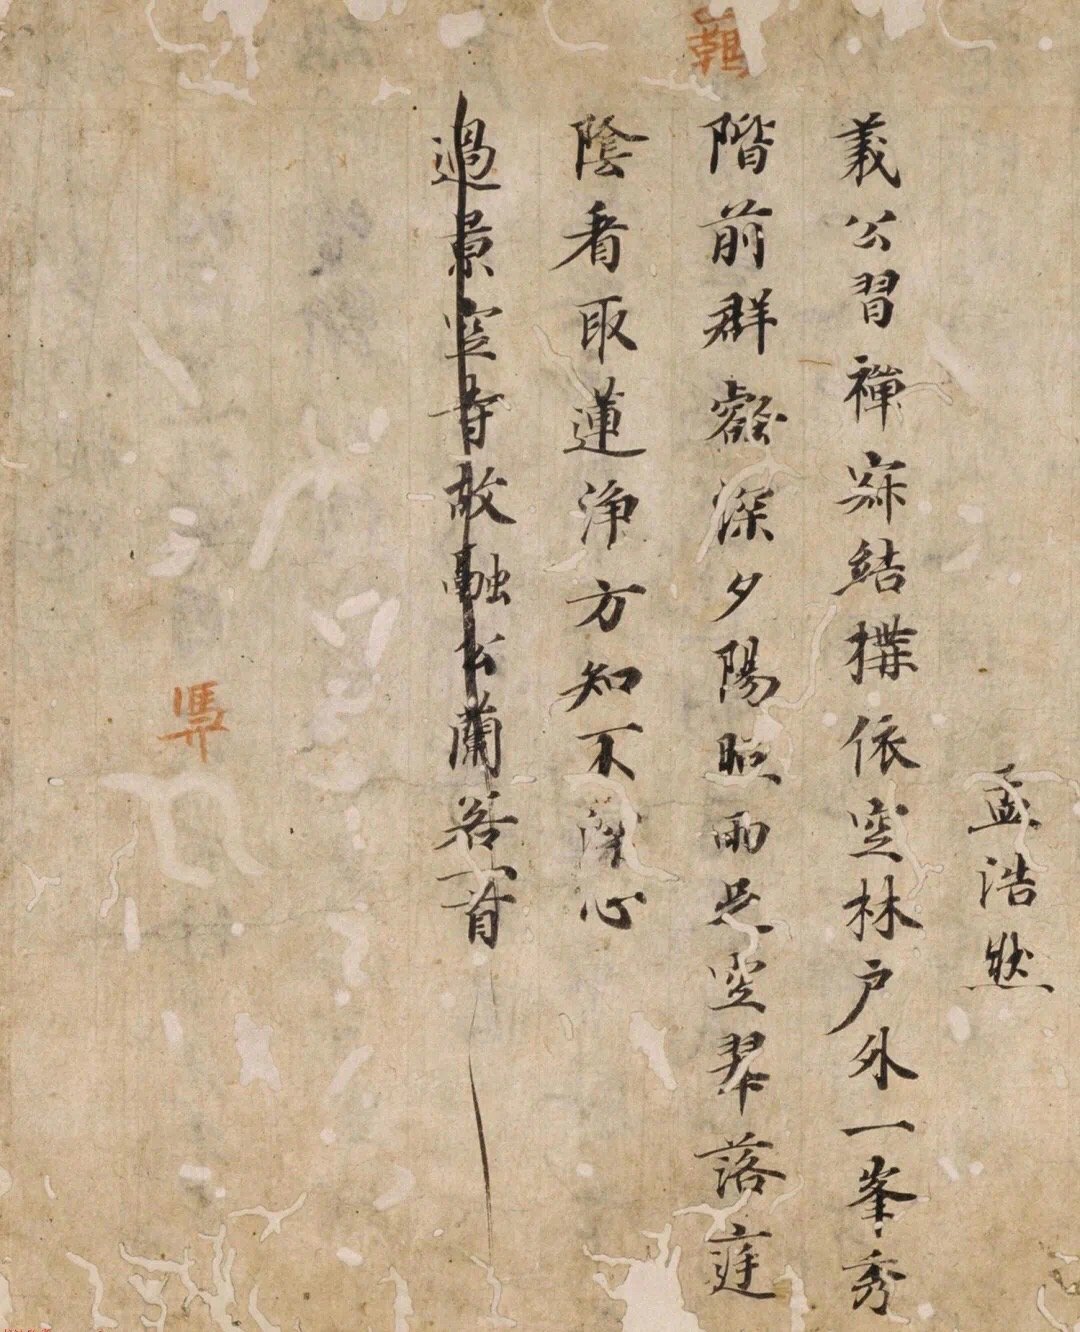 孟浩然
義公習禪寂結構依空林戶外一峯秀
階前群壑深夕陽照雨足空翠落庭
陰看取蓮淨方知不深心
過景空寺故融公蘭若一首